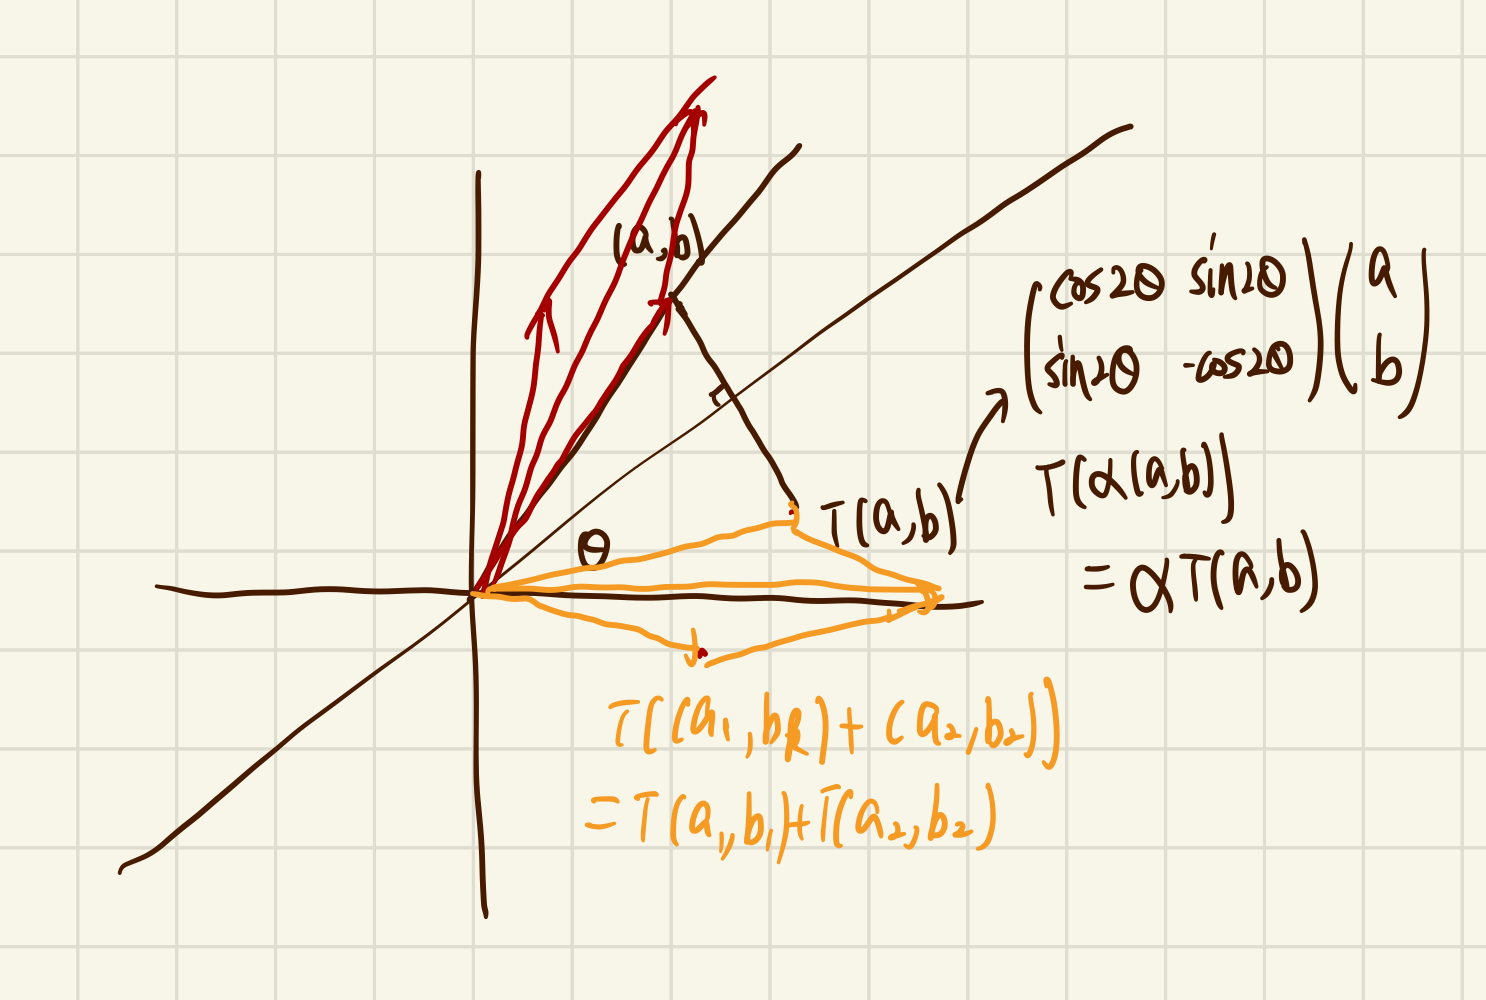 (a,b)
cos2θ sin2θ a
sin2θ -cos2θ b
T(α(a,b))
T(a,b)
θ
= αT(a,b)
T((a₁,b₁)+(a₂,b₂))
=T(a₁,b₁)+T(a₂,b₂)